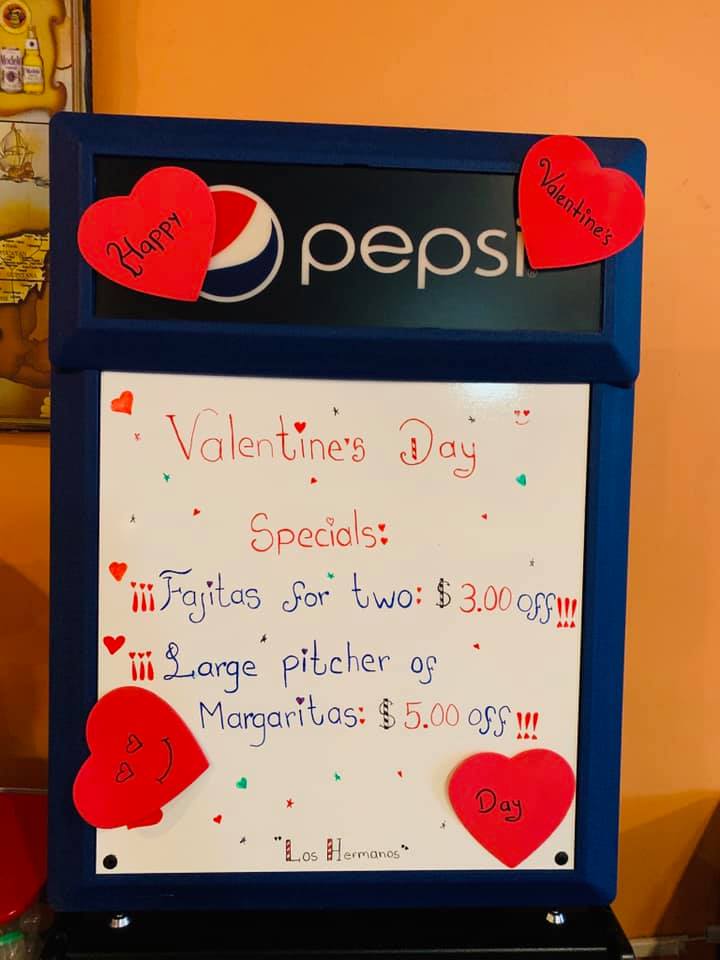 Modelo
Happy
pepsi
Valentine's
Valentine's Day
Specials:
¡¡¡Fajitas for two: $3.00 off!!!
¡¡¡Large pitcher of
Margaritas: $5.00 off!!!
Day
"Los Hermanos"